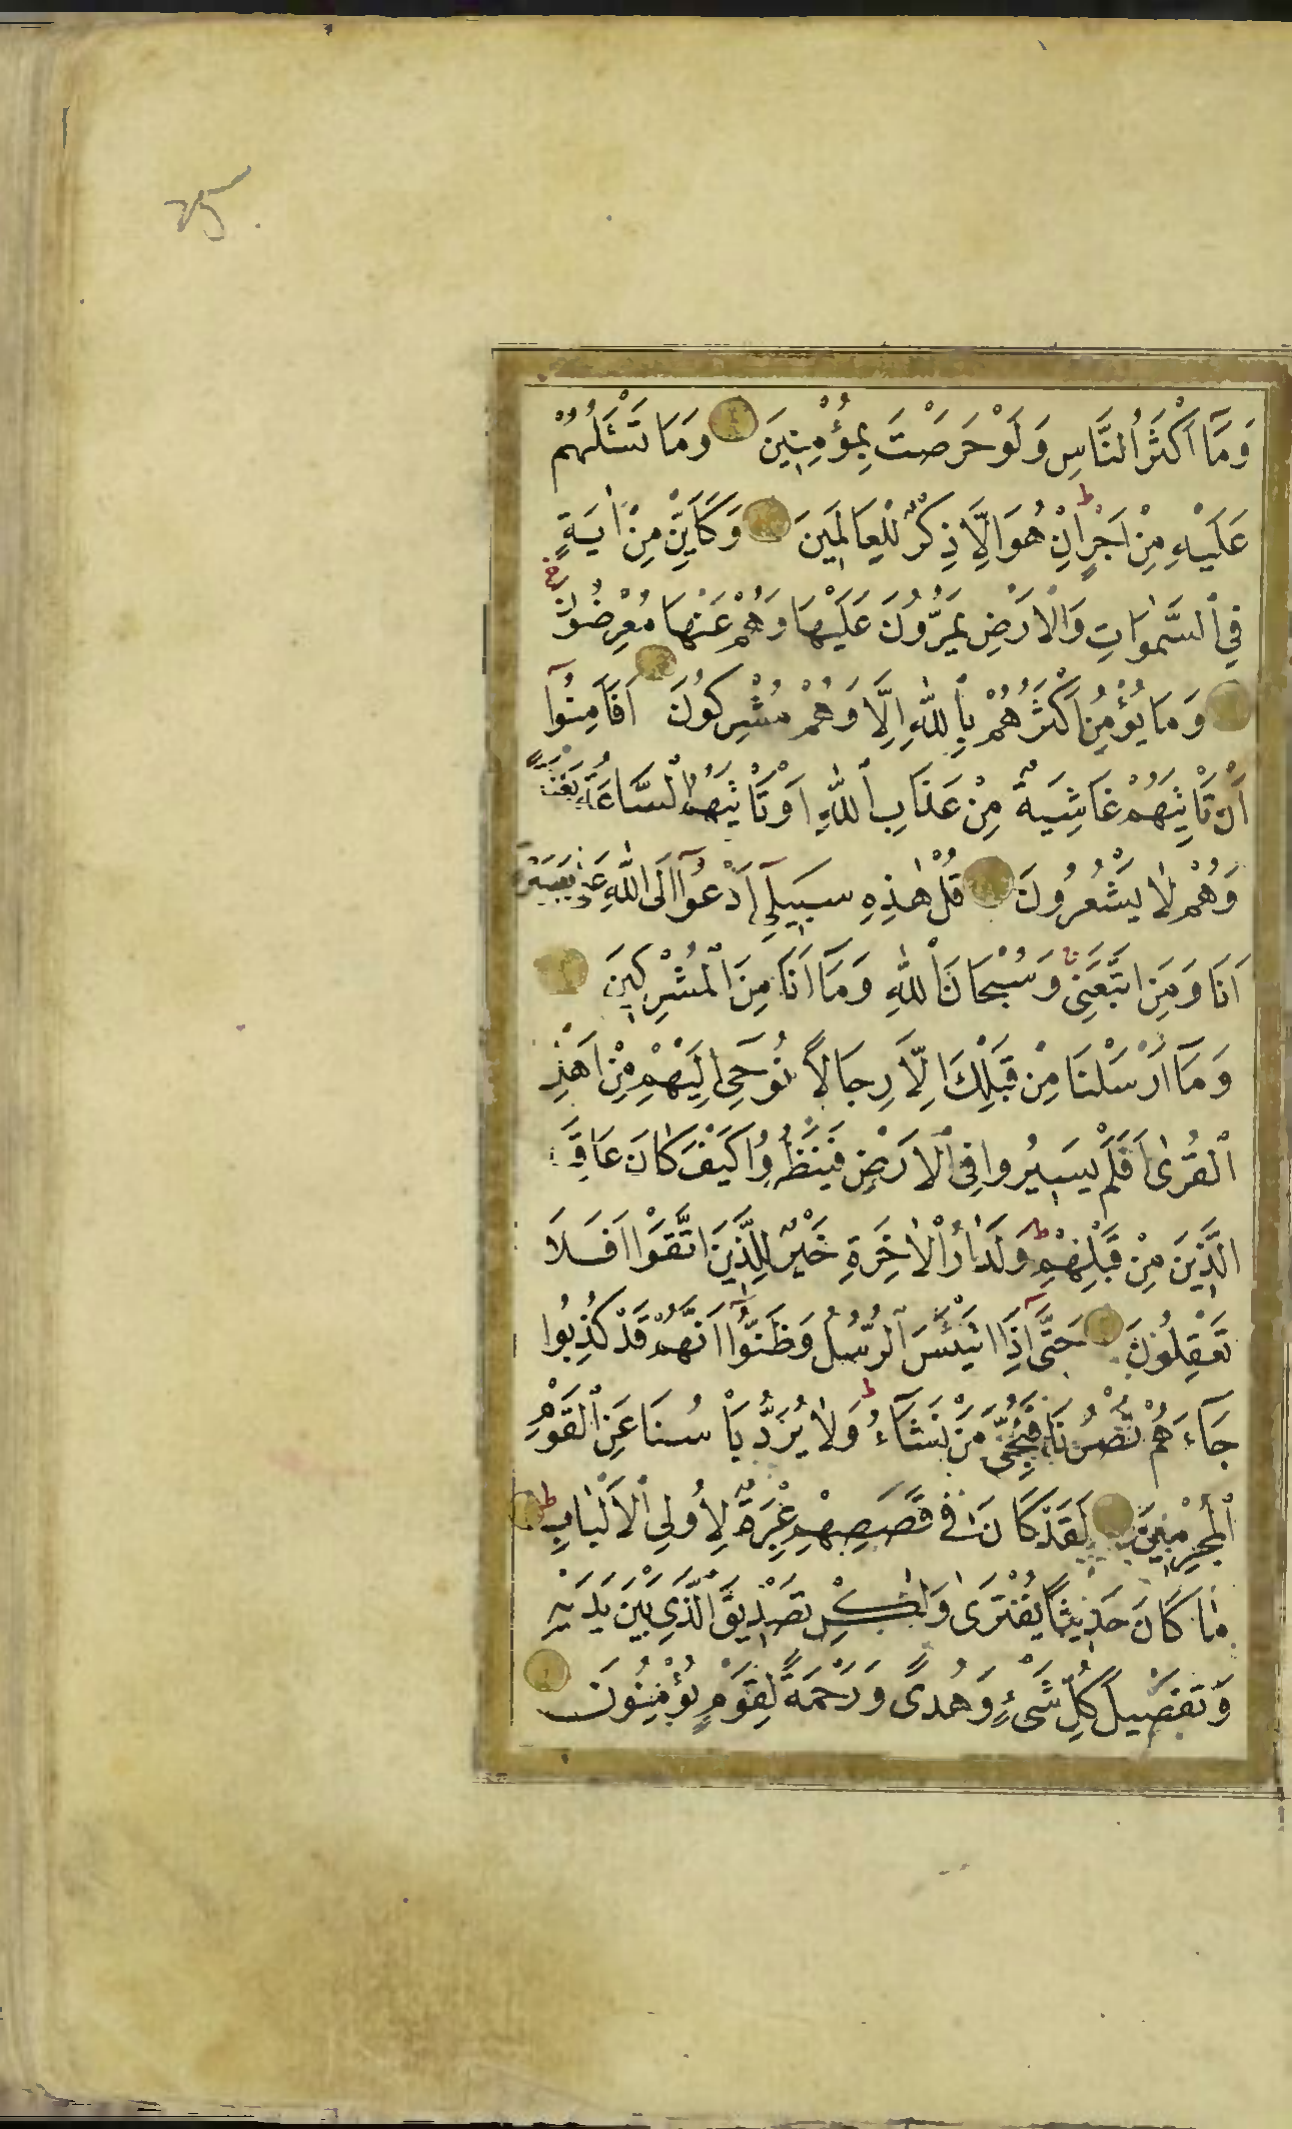 وَمَآ اَكْثَرُ النَّاسِ وَلَوْ حَرَصْتَ بِمُؤْمِنِينَ وَمَا تَسْئَلُهُمْ
عَلَيْهِ مِنْ اَجْرٍ اِنْ هُوَ اِلَّا ذِكْرٌ لِلْعَالَمِينَ وَكَاَيِّنْ مِنْ اٰيَةٍ
فِي السَّمٰوَاتِ وَالْاَرْضِ يَمُرُّونَ عَلَيْهَا وَهُمْ عَنْهَا مُعْرِضُونَ
وَمَا يُؤْمِنُ اَكْثَرُهُمْ بِاللّٰهِ اِلَّا وَهُمْ مُشْرِكُونَ اَفَاَمِنُوٓا
اَنْ تَاْتِيَهُمْ غَاشِيَةٌ مِنْ عَذَابِ اللّٰهِ اَوْ تَاْتِيَهُمُ السَّاعَةُ بَغْتَةً
وَهُمْ لَا يَشْعُرُونَ قُلْ هٰذِهِ سَبِيلِٓي اَدْعُوٓا اِلَى اللّٰهِ عَلٰى بَصِيرَةٍ
اَنَا وَمَنِ اتَّبَعَنِي وَسُبْحَانَ اللّٰهِ وَمَآ اَنَا مِنَ الْمُشْرِكِينَ
وَمَآ اَرْسَلْنَا مِنْ قَبْلِكَ اِلَّا رِجَالًا نُوحِي اِلَيْهِمْ مِنْ اَهْلِ
الْقُرٰى اَفَلَمْ يَسِيرُوا فِي الْاَرْضِ فَيَنْظُرُوا كَيْفَ كَانَ عَاقِبَةُ
الَّذِينَ مِنْ قَبْلِهِمْ وَلَدَارُ الْاٰخِرَةِ خَيْرٌ لِلَّذِينَ اتَّقَوْا اَفَلَا
تَعْقِلُونَ حَتّٰٓى اِذَا اسْتَيْئَسَ الرُّسُلُ وَظَنُّوٓا اَنَّهُمْ قَدْ كُذِبُوا
جَآءَهُمْ نَصْرُنَا فَنُجِّيَ مَنْ نَشَآءُ وَلَا يُرَدُّ بَاْسُنَا عَنِ الْقَوْمِ
الْمُجْرِمِينَ لَقَدْ كَانَ فِي قَصَصِهِمْ عِبْرَةٌ لِاُولِي الْاَلْبَابِ
مَا كَانَ حَدِيثًا يُفْتَرٰى وَلٰكِنْ تَصْدِيقَ الَّذِي بَيْنَ يَدَيْهِ
وَتَفْصِيلَ كُلِّ شَيْءٍ وَهُدًى وَرَحْمَةً لِقَوْمٍ يُؤْمِنُونَ